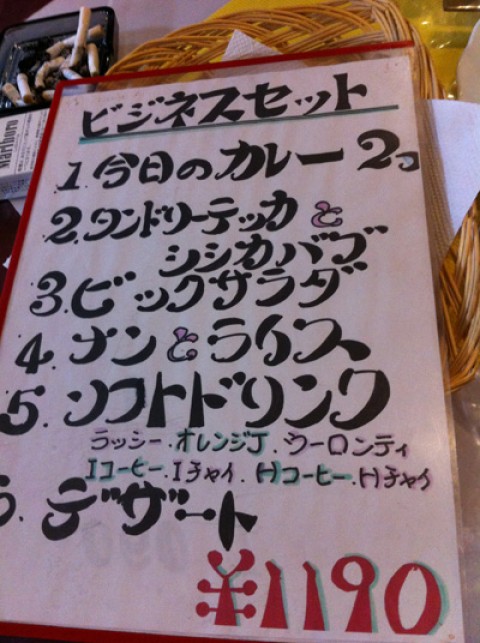 Marlboro
ビジネスセット
1.今日のカレー 2コ
2.タンドリーテッカと
シシカバブ
3.ビックサラダ
4.ナンとライス
5.ソフトドリンク
ラッシー.オレンジJ.ウーロンティ
Iコーヒー.Iチャイ.Hコーヒー.Hチャイ
デザート
¥1190